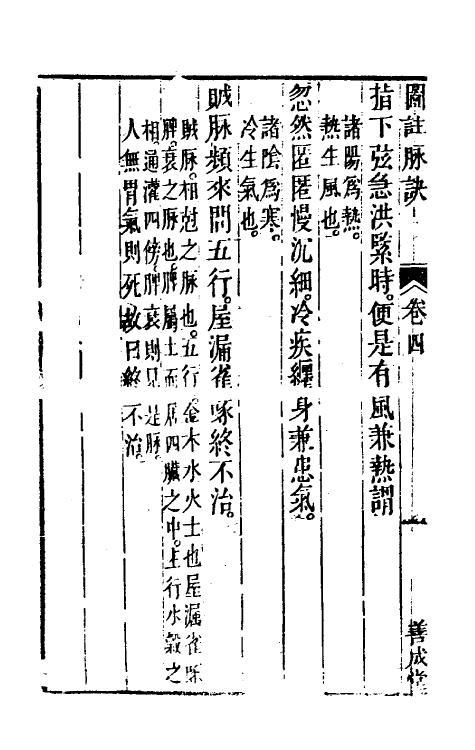 圖註脉訣 卷四 善成堂
指下弦急洪緊時。便是有風兼熱謂
諸陽為熱。
熱生風也。
忽然匿匿慢沉細。冷疾纏身兼患氣。
諸陰為寒。
冷生氣也。
賊脉頻來問五行。屋漏雀啄終不治。
賊脉。相尅之脉也。五行。金木水火土也屋漏雀啄
脾。衰之脉也。脾屬土而居四臟之中。上行水穀之
相。通灌四傍。脾衰則見是脉。
人無胃氣則死故曰終不治。